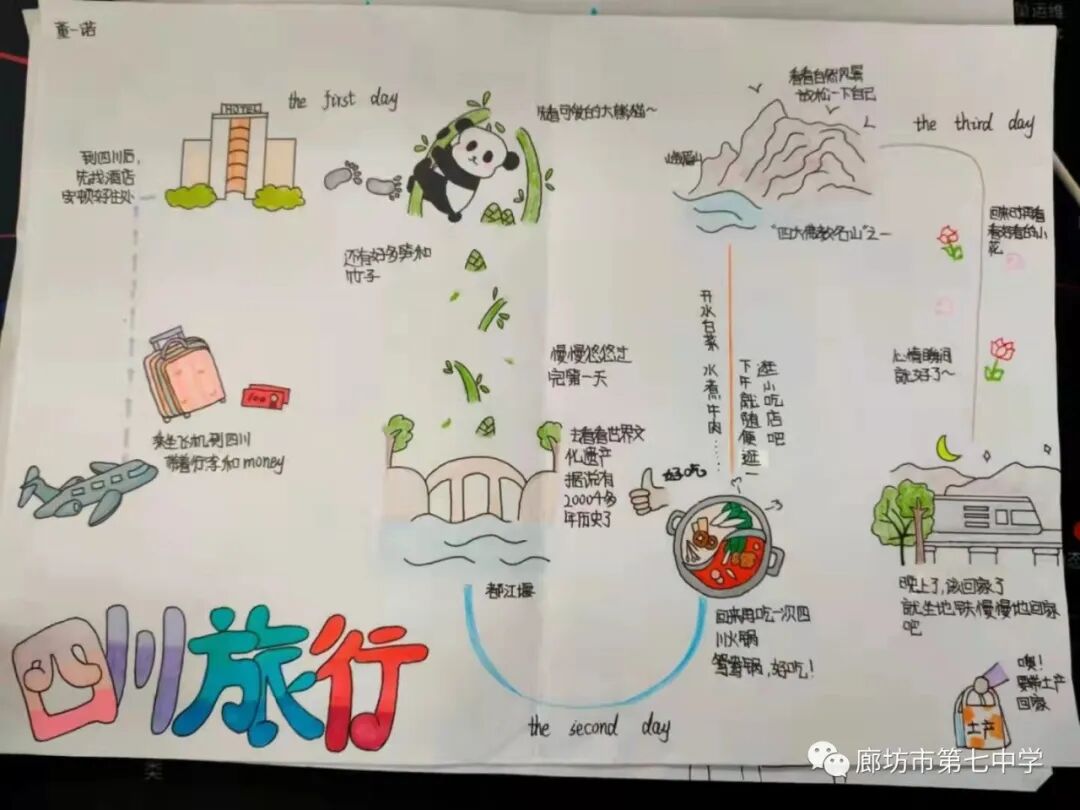 董一诺
HOTEL
the first day
到四川后,
先找酒店
安顿好住处
先看可爱的大熊猫~
还有好多笋和
竹子
乘坐飞机到四川
带着行李和money
慢慢悠悠过
完第一天
去看看世界文
化遗产
据说有
2000多
年历史了
都江堰
the second day
四川旅行
看看自然风景
放松一下自己
峨眉山
"四大佛教名山"之一
开水白菜 水煮牛肉……
逛小吃店吧
下午就随便逛一
好吃
回来再吃一次四
川火锅
鸳鸯锅,好吃!
the third day
回来时再看
看好看的小
花
心情瞬间
就好了~
晚上了,该回家了
就坐地铁慢慢地回家
吧
噢!
要带土产
回家
土产
廊坊市第七中学